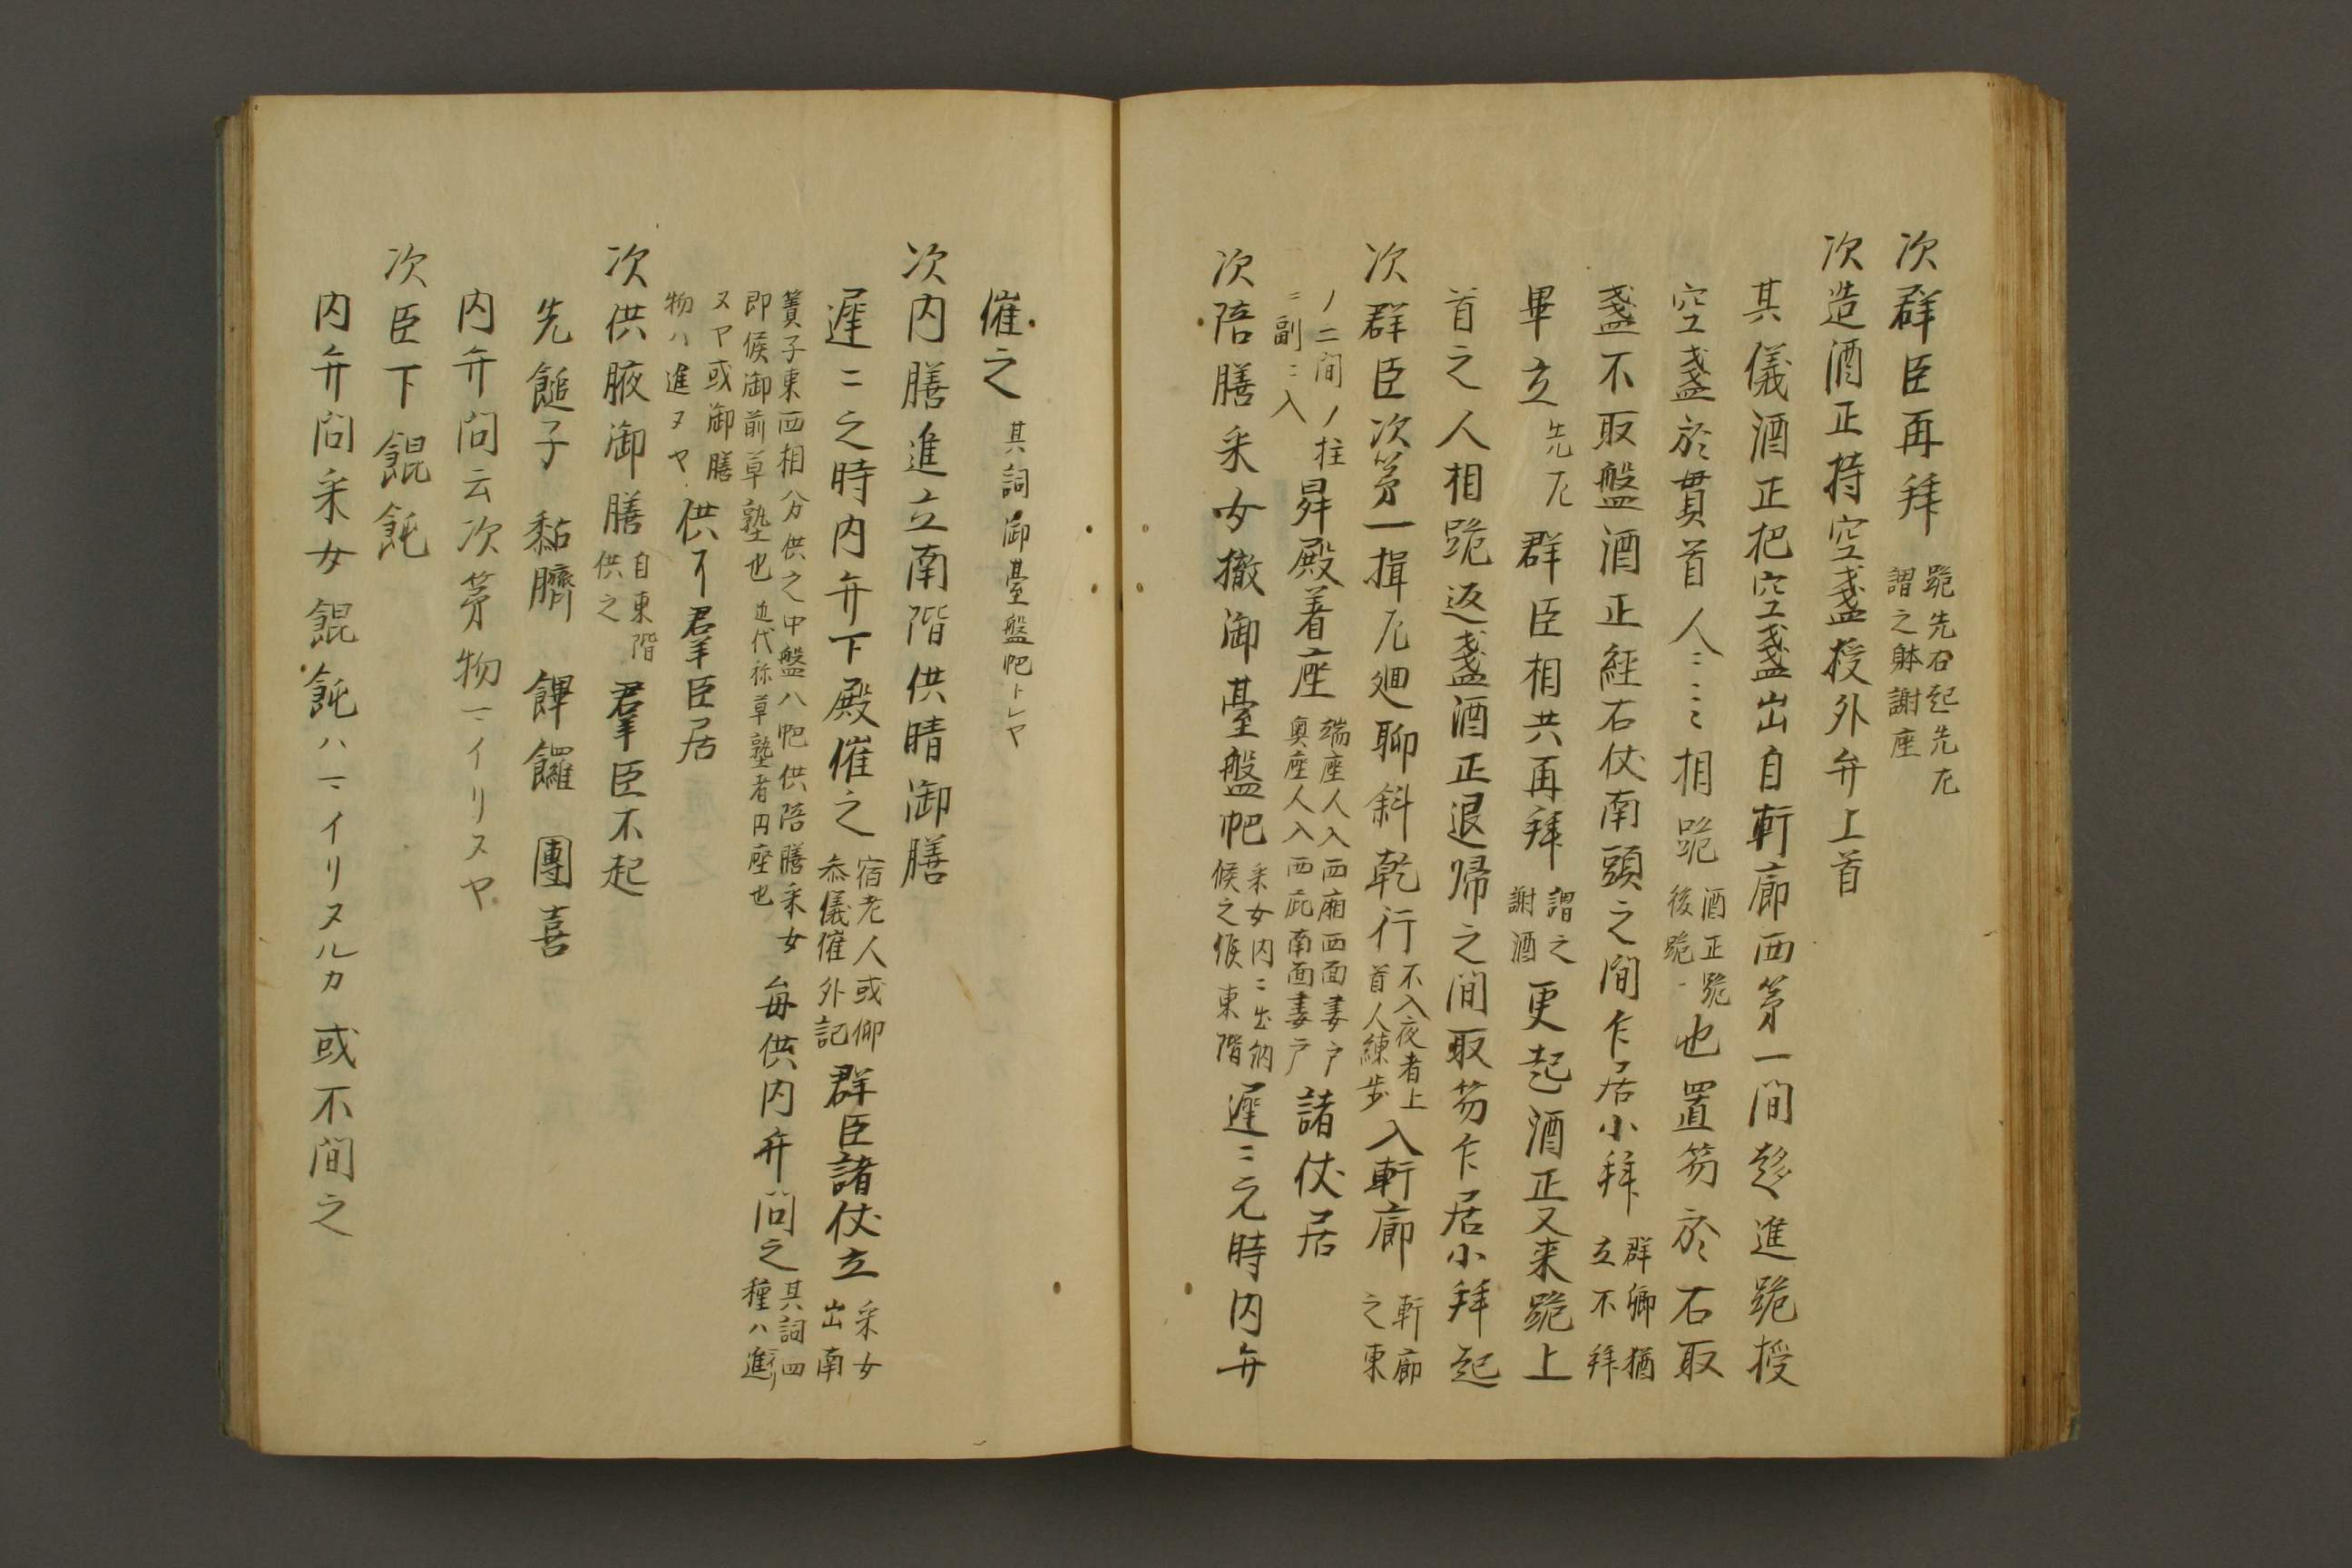 次群臣再拜 跪先右起先左謂之躰謝座
次造酒正持空盞授外弁上首
其儀酒正把空盞出自軒廊西第一間趍進跪授
空盞於貫首人〻〻〻相跪 酒正跪後跪 也置笏於右取
盞不取盤酒正経右仗南頭之間乍居小拜 群卿猶立不拜
畢立 先左 群臣相共再拜 謂之謝酒 更起酒正又来跪上
首之人相跪返盞酒正退帰之間取笏乍居小拜起
次群臣次第一揖左廻聊斜乾行 不入夜者上首人練歩 入軒廊 軒廊之東
ノ二間ノ柱ニ副ニ入 昇殿着座 端座人入西廂西面妻戸奥座人入西庇南面妻戸 諸仗居
次陪膳采女撤御臺盤帊 采女内ニ出納候之候東階 遅〻元時内弁
催之 其詞御臺盤帊トレヤ
次内膳進立南階供晴御膳
遅〻之時内弁下殿催之 宿老人或仰参儀催外記 群臣諸仗立 采女出南
簀子東西相分供之中盤八帊供陪膳采女即候御前草塾也近代称草塾者円座也 毎供内弁問之 其詞四種ハ進リ
ヌヤ或御膳物ハ進ヌヤ 供了羣臣居
次供腋御膳 自東階供之 羣臣不起
先䭔子 黏臍 饆饠 團喜
内弁問云次第物マイリヌヤ
次臣下餛飩
内弁問采女餛飩ハマイリヌルカ或不問之